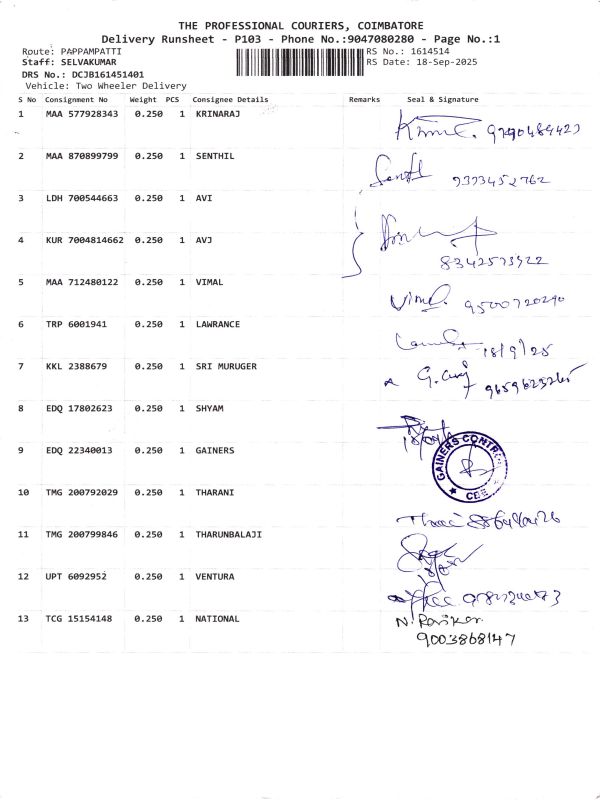 THE PROFESSIONAL COURIERS, COIMBATORE
Delivery Runsheet - P103 - Phone No.:9047080280 - Page No.:1
Route: PAPPAMPATTI
RS No.: 1614514
Staff: SELVAKUMAR
RS Date: 18-Sep-2025
DRS No.: DCJB161451401
Vehicle: Two Wheeler Delivery
S No Consignment No Weight PCS Consignee Details Remarks Seal & Signature
1 MAA 577928343 0.250 1 KRINARAJ
2 MAA 870899799 0.250 1 SENTHIL
9373452762
3 LDH 700544663 0.250 1 AVI
4 KUR 7004814662 0.250 1 AVJ
5 MAA 712480122 0.250 1 VIMAL
Vimal. 9500720290
6 TRP 6001941 0.250 1 LAWRANCE
18/9/25
7 KKL 2388679 0.250 1 SRI MURUGER
8 EDQ 17802623 0.250 1 SHYAM
9 EDQ 22340013 0.250 1 GAINERS
GAINERS CONTR
CBE
10 TMG 200792029 0.250 1 THARANI
11 TMG 200799846 0.250 1 THARUNBALAJI
12 UPT 6092952 0.250 1 VENTURA
13 TCG 15154148 0.250 1 NATIONAL
9003868147